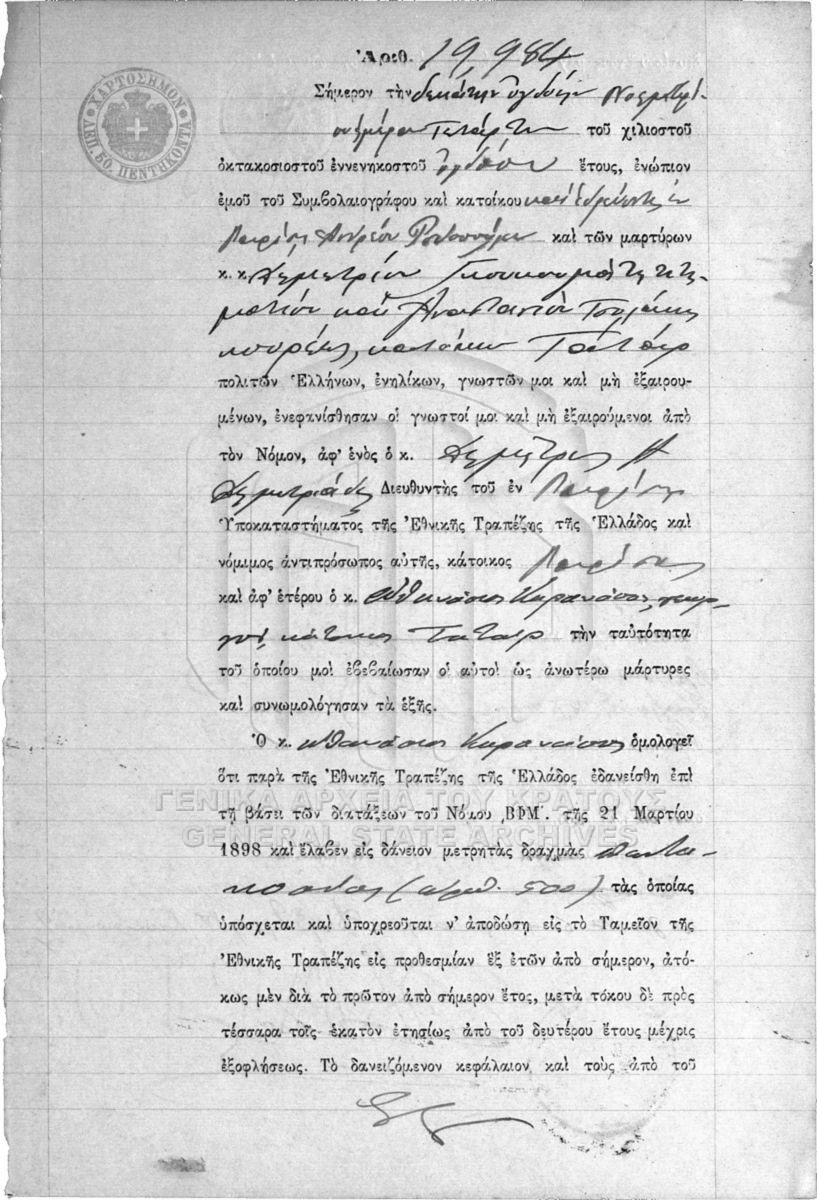 Ἀριθ. 19,984
ΧΑΡΤΟΣΗΜΟΝ
ΛΕΠ. 50. ΠΕΝΤΗΚΟΝΤΑ
Σήμερον τὴν δεκάτην ὀγδόην Νοεμβρί-
ου ἡμέραν Τετάρτην τοῦ χιλιοστοῦ
ὀκτακοσιοστοῦ ἐννενηκοστοῦ ὀγδόου ἔτους, ἐνώπιον
ἐμοῦ τοῦ Συμβολαιογράφου καὶ κατοίκου καὶ ἑδρεύοντος ἐν
Λαρίσῃ Ἀνδρέου καὶ τῶν μαρτύρων
κ. κ. Δημητρίου κτη-
ματίου καὶ Ἀναστασίου
κουρέως, κατοίκων Τατάρ
πολιτῶν Ἑλλήνων, ἐνηλίκων, γνωστῶν μοι καὶ μὴ ἐξαιρου-
μένων, ἐνεφανίσθησαν οἱ γνωστοί μοι καὶ μὴ ἐξαιρούμενοι ἀπὸ
τὸν Νόμον, ἀφ' ἑνὸς ὁ κ. Δημήτριος
Δημητριάδης Διευθυντὴς τοῦ ἐν Λαρίσῃ
Ὑποκαταστήματος τῆς Ἐθνικῆς Τραπέζης τῆς Ἑλλάδος καὶ
νόμιμος ἀντιπρόσωπος αὐτῆς, κάτοικος Λαρίσης
καὶ ἀφ' ἑτέρου ὁ κ. Ἀθανάσιος Καρανάσιος, γεωρ-
γός, κάτοικος Τατάρ τὴν ταὐτότητα
τοῦ ὁποίου μοὶ ἐβεβαίωσαν οἱ αὐτοὶ ὡς ἀνωτέρω μάρτυρες
καὶ συνωμολόγησαν τὰ ἑξῆς.
Ὁ κ. Ἀθανάσιος Καρανάσιος ὁμολογεῖ
ὅτι παρὰ τῆς Ἐθνικῆς Τραπέζης τῆς Ἑλλάδος ἐδανείσθη ἐπὶ
ΓΕΝΙΚΑ ΑΡΧΕΙΑ ΤΟΥ ΚΡΑΤΟΥΣ
τῇ βάσει τῶν διατάξεων τοῦ Νόμου ͵ΒΦΜ΄. τῆς 21 Μαρτίου
GENERAL STATE ARCHIVES
1898 καὶ ἔλαβεν εἰς δάνειον μετρητὰς δραχμὰς πεντα-
κοσίας (ἀριθ. 500) τὰς ὁποίας
ὑπόσχεται καὶ ὑποχρεοῦται ν' ἀποδώσῃ εἰς τὸ Ταμεῖον τῆς
Ἐθνικῆς Τραπέζης εἰς προθεσμίαν ἓξ ἐτῶν ἀπὸ σήμερον, ἀτό-
κως μὲν διὰ τὸ πρῶτον ἀπὸ σήμερον ἔτος, μετὰ τόκου δὲ πρὸς
τέσσαρα τοῖς ἑκατὸν ἐτησίως ἀπὸ τοῦ δευτέρου ἔτους μέχρις
ἐξοφλήσεως. Τὸ δανειζόμενον κεφάλαιον καὶ τοὺς ἀπὸ τοῦ